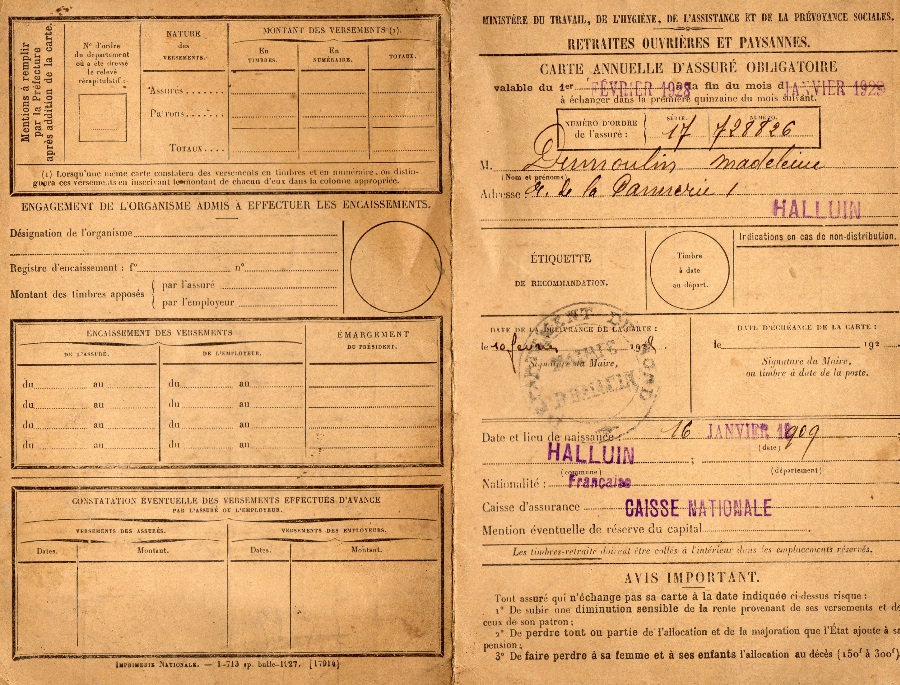 Mentions à remplir
par la Préfecture
après addition de la carte.
N° d'ordre
du département
où a été dressé
le relevé
récapitulatif.
NATURE
des
VERSEMENTS.
MONTANT DES VERSEMENTS (1).
En
TIMBRES.
En
NUMÉRAIRE.
TOTAUX.
Assurés
Patrons
TOTAUX
(1) Lorsqu'une même carte constatera des versements en timbres et en numéraire, on distin-
guera ces versements en inscrivant le montant de chacun d'eux dans la colonne appropriée.
ENGAGEMENT DE L'ORGANISME ADMIS À EFFECTUER LES ENCAISSEMENTS.
Désignation de l'organisme
Registre d'encaissement : f° n°
Montant des timbres apposés { par l'assuré
par l'employeur
ENCAISSEMENT DES VERSEMENTS
DE L'ASSURÉ.
DE L'EMPLOYEUR.
ÉMARGEMENT
DU PRÉSIDENT.
du au du au
du au du au
du au du au
du au du au
CONSTATATION ÉVENTUELLE DES VERSEMENTS EFFECTUÉS D'AVANCE
PAR L'ASSURÉ OU L'EMPLOYEUR.
VERSEMENTS DES ASSURÉS.
VERSEMENTS DES EMPLOYEURS.
Dates. Montant. Dates. Montant.
IMPRIMERIE NATIONALE. — 1-713 sp. bulle-1927. [17914]
MINISTÈRE DU TRAVAIL, DE L'HYGIÈNE, DE L'ASSISTANCE ET DE LA PRÉVOYANCE SOCIALES.
RETRAITES OUVRIÈRES ET PAYSANNES.
CARTE ANNUELLE D'ASSURÉ OBLIGATOIRE
valable du 1er FÉVRIER 1928 à la fin du mois d JANVIER 1929
à échanger dans la première quinzaine du mois suivant.
NUMÉRO D'ORDRE
de l'assuré :
SÉRIE. NUMÉRO.
17 728826
M. Dumoulin Madeleine
(Nom et prénoms)
Adresse : R. de la 1
HALLUIN
ÉTIQUETTE
DE RECOMMANDATION.
Timbre
à date
au départ.
Indications en cas de non-distribution.
DATE DE LA DÉLIVRANCE DE LA CARTE :
le 10 février 1928
Signature du Maire,
DÉPARTEMENT DU NORD
MAIRIE
D'HALLUIN
DATE D'ÉCHÉANCE DE LA CARTE :
le 192
Signature du Maire,
ou timbre à date de la poste.
Date et lieu de naissance : 16 JANVIER 1909
(date)
HALLUIN ;
(commune) (département)
Nationalité : Française
Caisse d'assurance CAISSE NATIONALE
Mention éventuelle de réserve du capital
Les timbres-retraite doivent être collés à l'intérieur dans les emplacements réservés.
AVIS IMPORTANT.
Tout assuré qui n'échange pas sa carte à la date indiquée ci-dessus risque :
1° De subir une diminution sensible de la rente provenant de ses versements et de
ceux de son patron ;
2° De perdre tout ou partie de l'allocation et de la majoration que l'État ajoute à sa
pension ;
3° De faire perdre à sa femme et à ses enfants l'allocation au décès (150f à 300f)